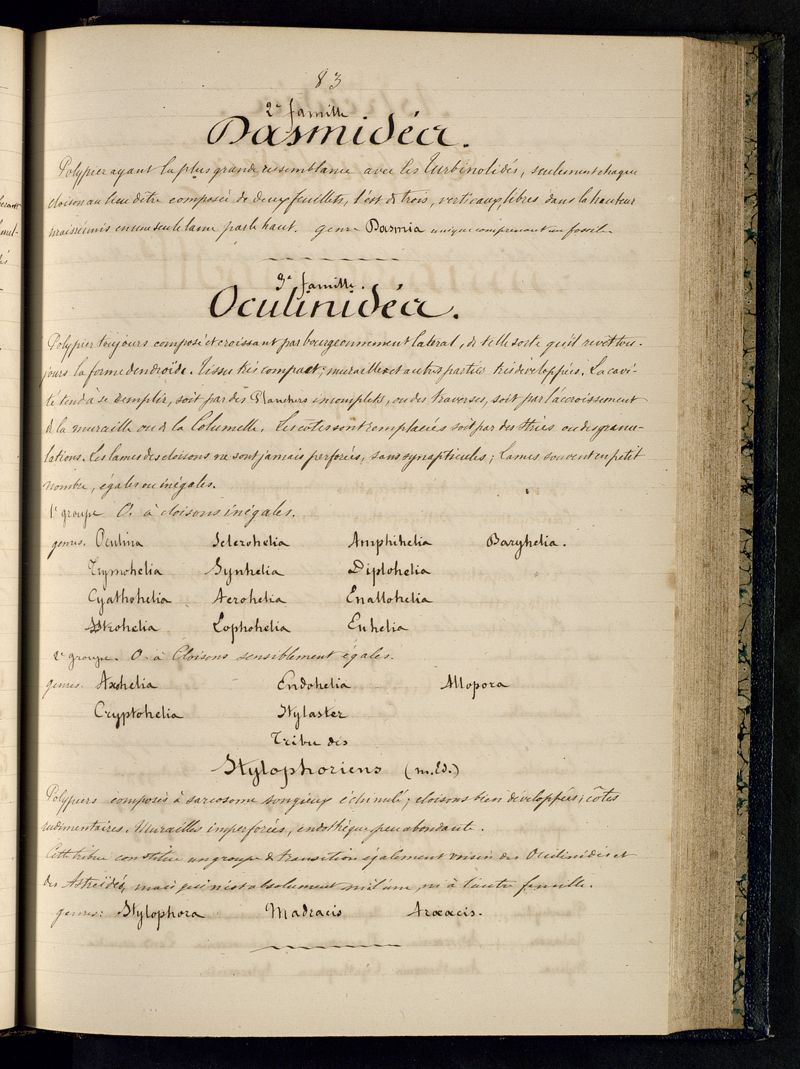 83
2e famille
Dasmidéa.
Polypier ayant la plus grande ressemblance avec les Turbinolidés, seulement chaque
cloison au lieu d'être composée de deux feuillets, l'est de trois, verticaux, libres dans la hauteur
mais réunis en une seule lame par le haut. genre Dasmia unique comprenant un fossile
3e famille.
Oculinidéa.
Polypier toujours composé et croissant par bourgeonnement latéral, de telle sorte qu'il revêt tou-
jours la forme dendroïde. Tissu très compact; murailles et autres parties très développées. La cavi-
té tend à se remplir, soit par des Planchers incomplets, ou des traverses, soit par l'accroissement
de la muraille ou de la Columelle. Les côtes sont remplacées soit par des stries ou des granu-
lations. Les lames des cloisons ne sont jamais perforées, sans synapticules; lames souvent en petit
nombre, égales ou inégales.
1e groupe O. à cloisons inégales.
genres. Oculina Sclerohelia Amphihelia Baryhelia.
Trymohelia Synhelia Diplohelia
Cyathohelia Acrohelia Enallohelia
Astrohelia Lophohelia Euhelia
2e groupe. O. à Cloisons sensiblement égales.
genres. Axohelia Endohelia Allopora
Cryptohelia Stylaster
Tribu des
Stylophoriens (m. Ed.)
Polypiers composés à sarcosome songieux échinulé; cloisons bien développées; côtes
rudimentaires, Murailles imperforées, endothèque peu abondante.
Cette tribu constitue un groupe de transition également voisin des Oculinidés et
des Astréïdés, mais qui n'est absolument ni à l'une, ni à l'autre famille.
genres: Stylophora Madracis Araxacis.